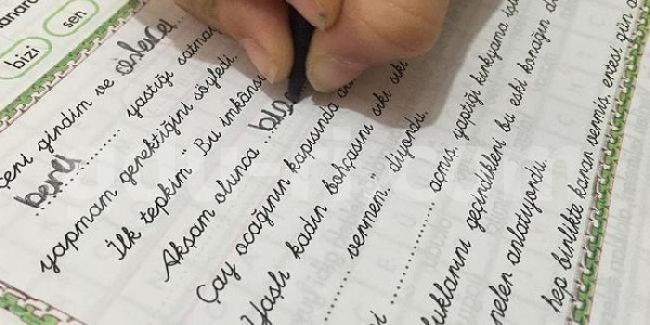 bizi sen
çeni giydim ve onlara
beni yastığı satmay
yapmam gerektiğini söyledi.
İlk tepkim " Bu imkânsı
Akşam olunca
Çay ocağının kapısında
Yaşlı kadın bohçasını sıkı sıkı
vermem." diyordu.
açmış, yaptığı kırkyama
luklarını geçirdikleri bu eski konağın
neler anlatıyordu.
hep birlikte karar vermiş, ertesi gün